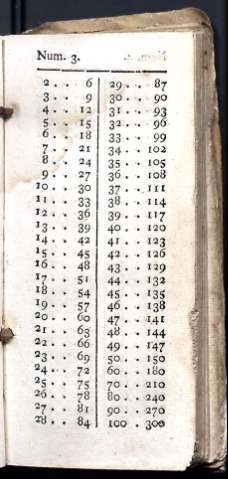 Num. 3.
2 . . 6
3 . . 9
4 . . 12
5 . . 15
6 . . 18
7 . . 21
8 . . 24
9 . . 27
10 . . 30
11 . . 33
12 . . 36
13 . . 39
14 . . 42
15 . . 45
16 . . 48
17 . . 51
18 . . 54
19 . . 57
20 . . 60
21 . . 63
22 . . 66
23 . . 69
24 . . 72
25 . . 75
26 . . 78
27 . . 81
28 . . 84
29 . . 87
30 . . 90
31 . . 93
32 . . 96
33 . . 99
34 . . 102
35 . . 105
36 . . 108
37 . . 111
38 . . 114
39 . . 117
40 . . 120
41 . . 123
42 . . 126
43 . . 129
44 . . 132
45 . . 135
46 . . 138
47 . . 141
48 . . 144
49 . . 147
50 . . 150
60 . . 180
70 . . 210
80 . . 240
90 . . 270
100 . 300